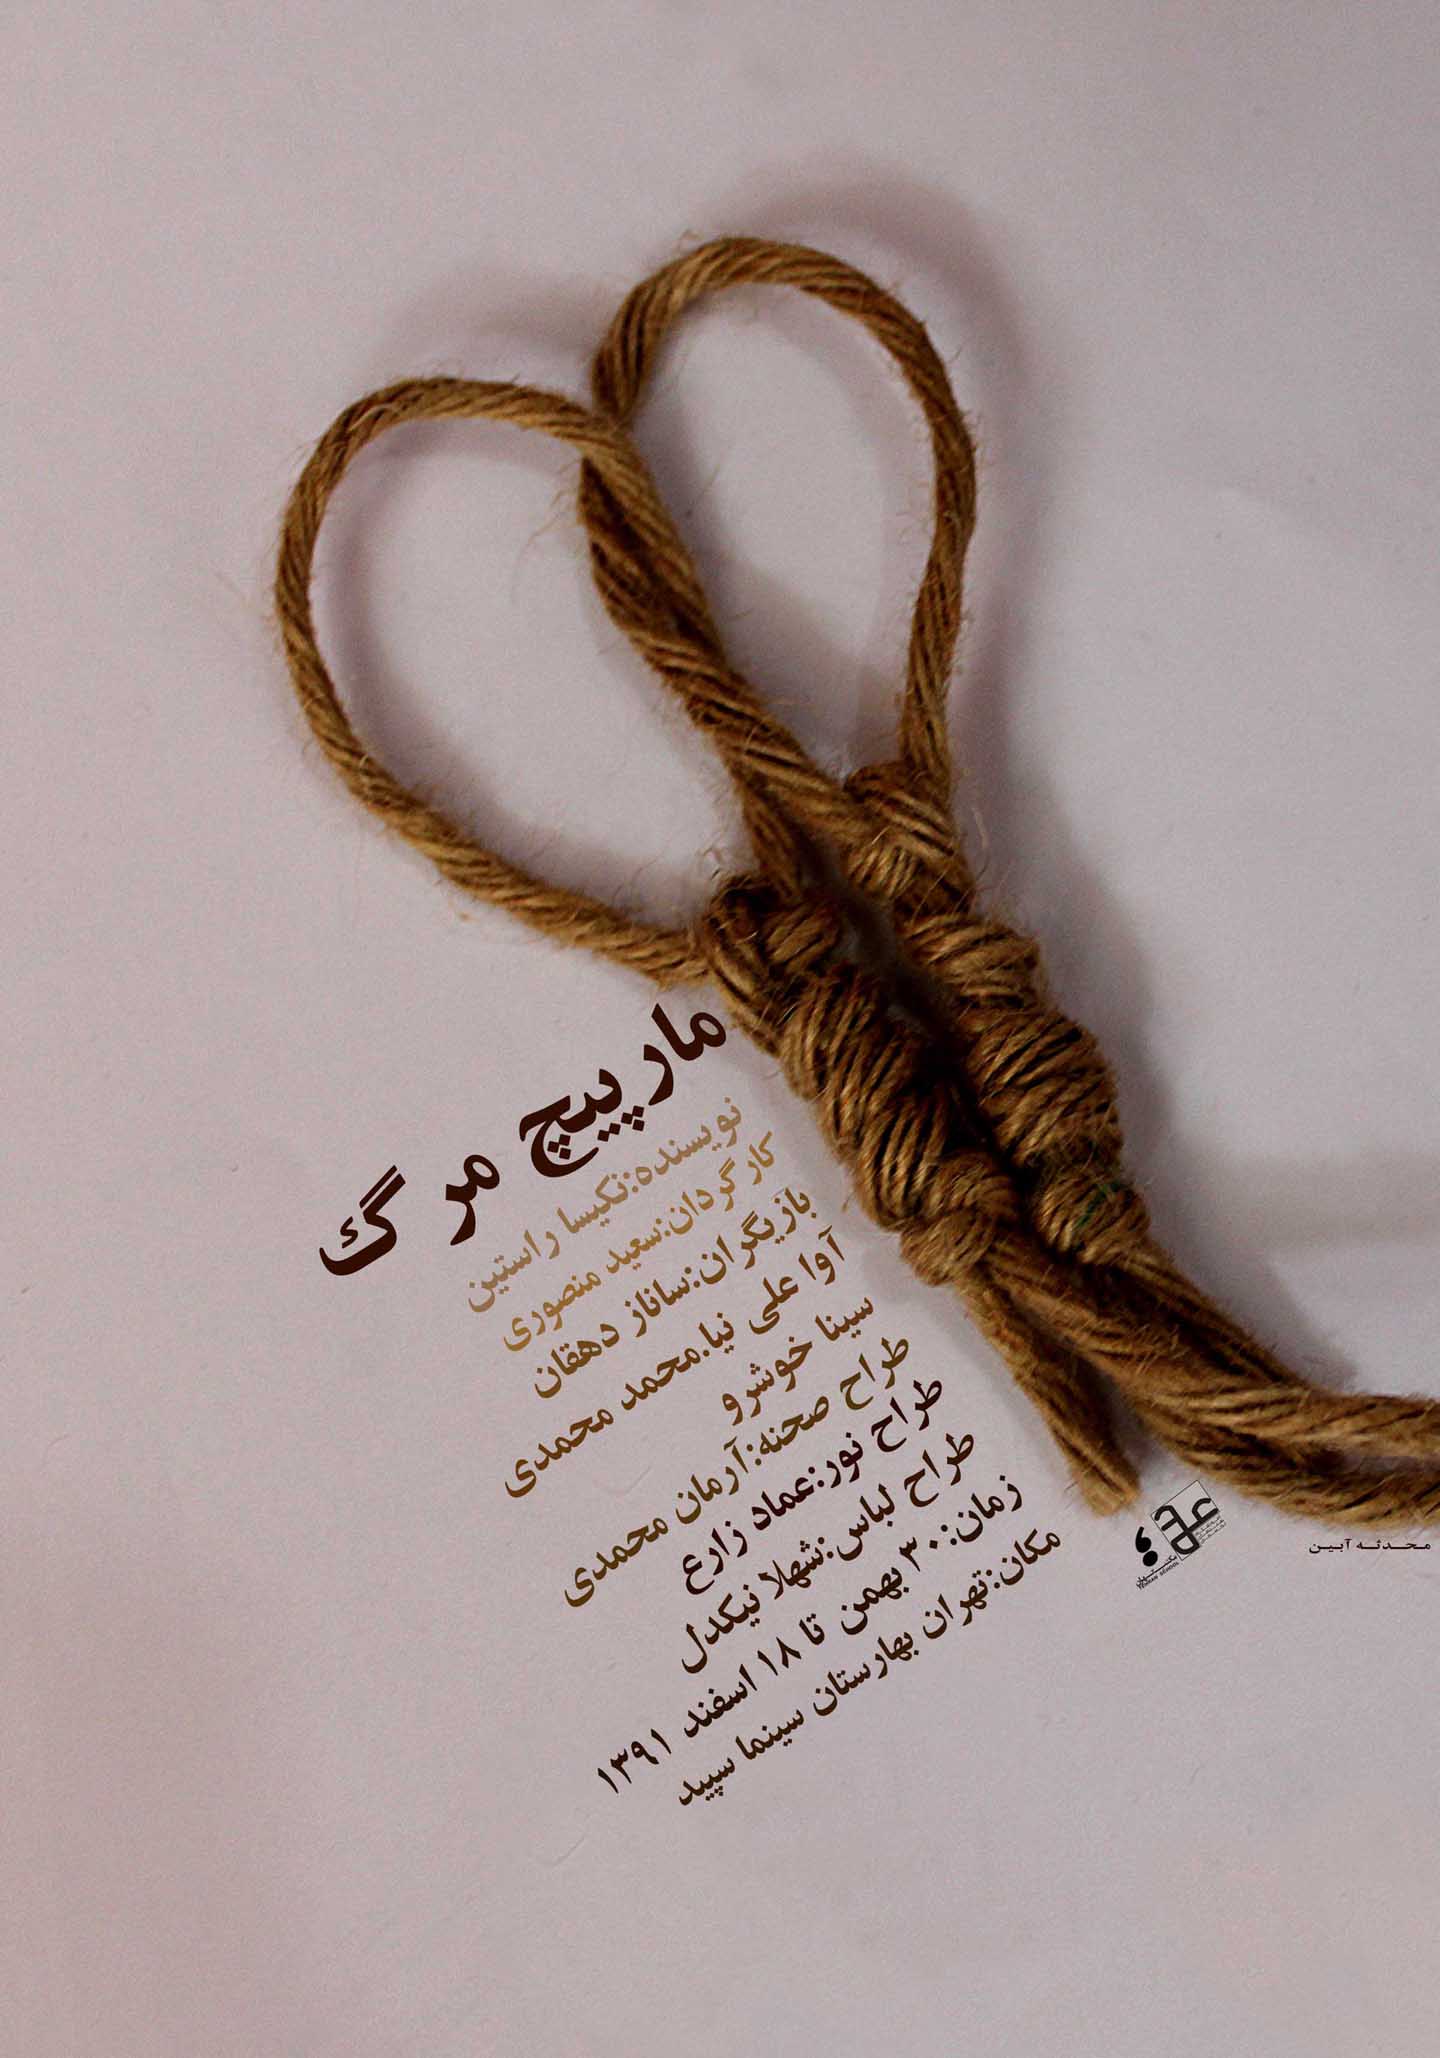 مارپیچ مرگ
نویسنده:نکیسا راستین
کارگردان:سعید منصوری
بازیگران:ساناز دهقان
آوا علی نیا.محمد محمدی
سینا خوشرو
طراح صحنه:آرمان محمدی
طراح نور:عماد زارع
طراح لباس:شهلا نیکدل
زمان:۳۰ بهمن تا ۱۸ اسفند ۱۳۹۱
مکان:تهران بهارستان سینما سپید
محدثه آبین
TEHRAN SCHOOL